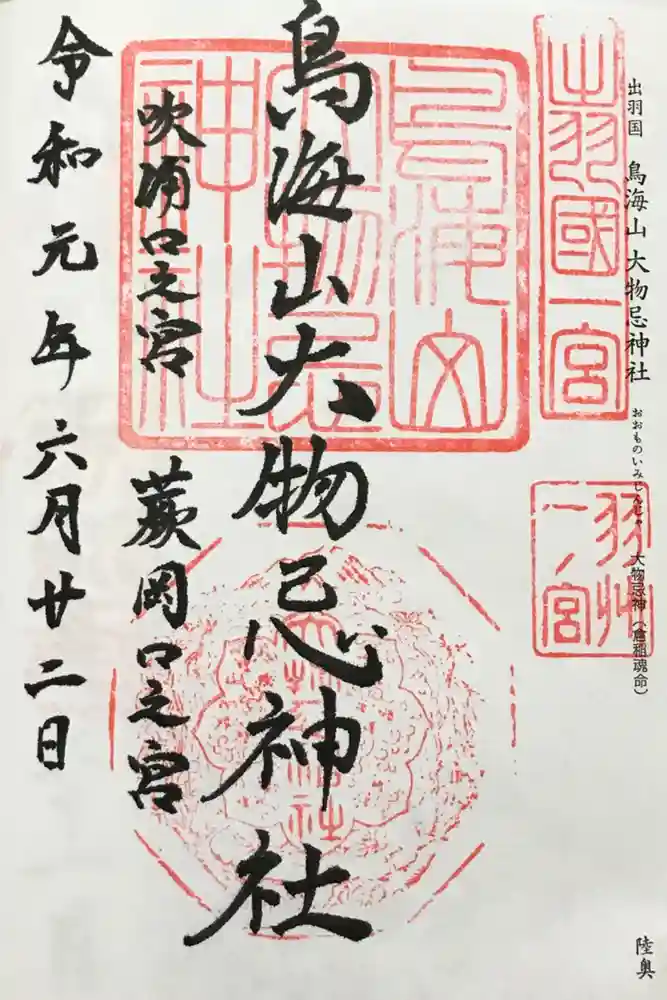 出羽国 鳥海山 大物忌神社 おおものいみじんじゃ 大物忌神(倉稲魂命)
陸奥
出羽國一宮
羽州
一ノ宮
鳥海山
大物忌
神社
鳥海山大物忌神社
吹浦口之宮 蕨岡口之宮
令和元年六月廿二日